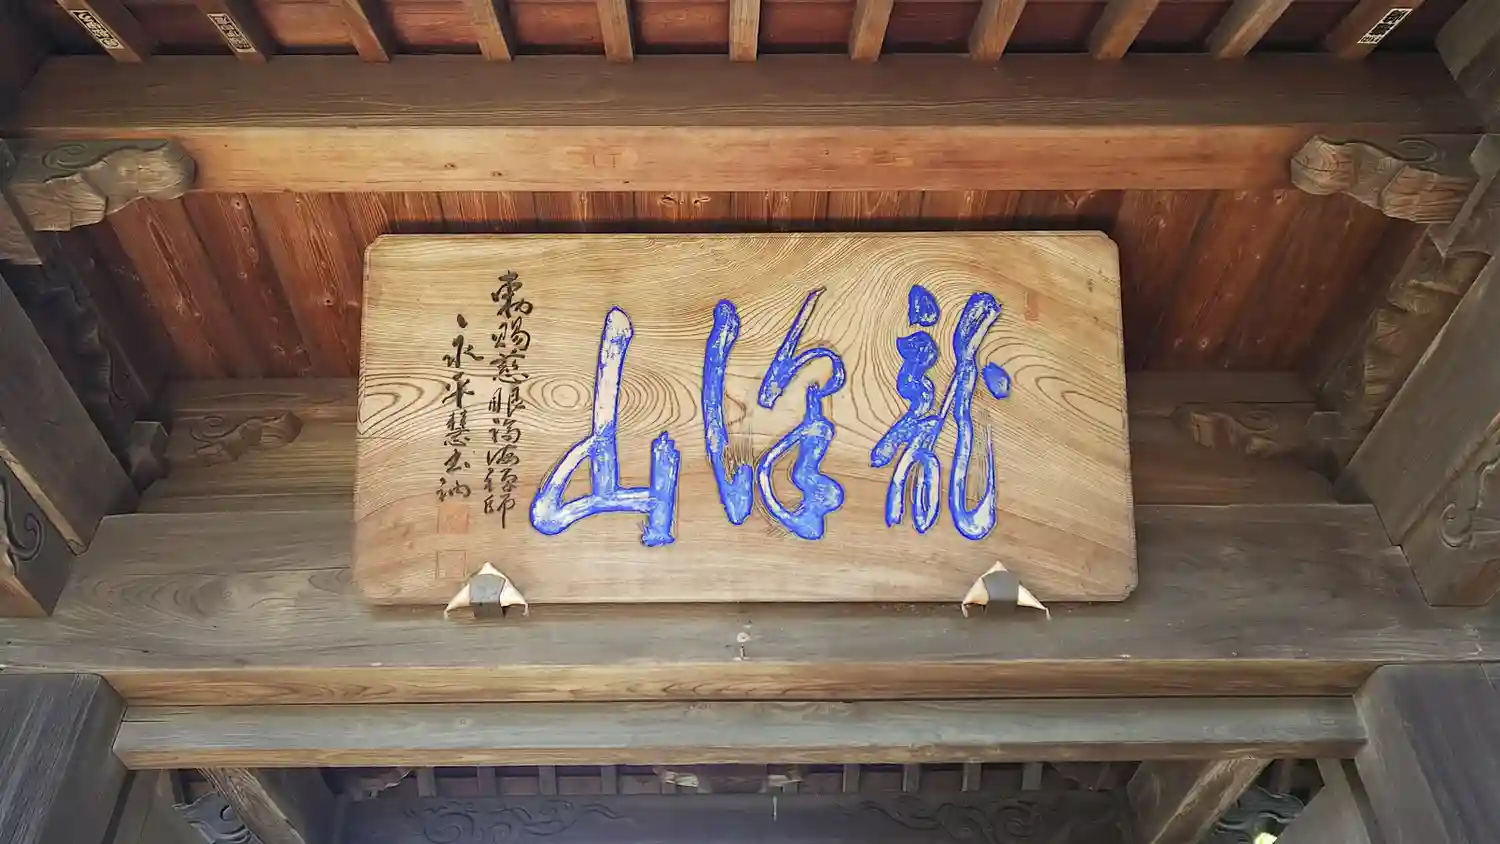 龍澤山
勅賜慈眼福海禅師
永平慧玉衲